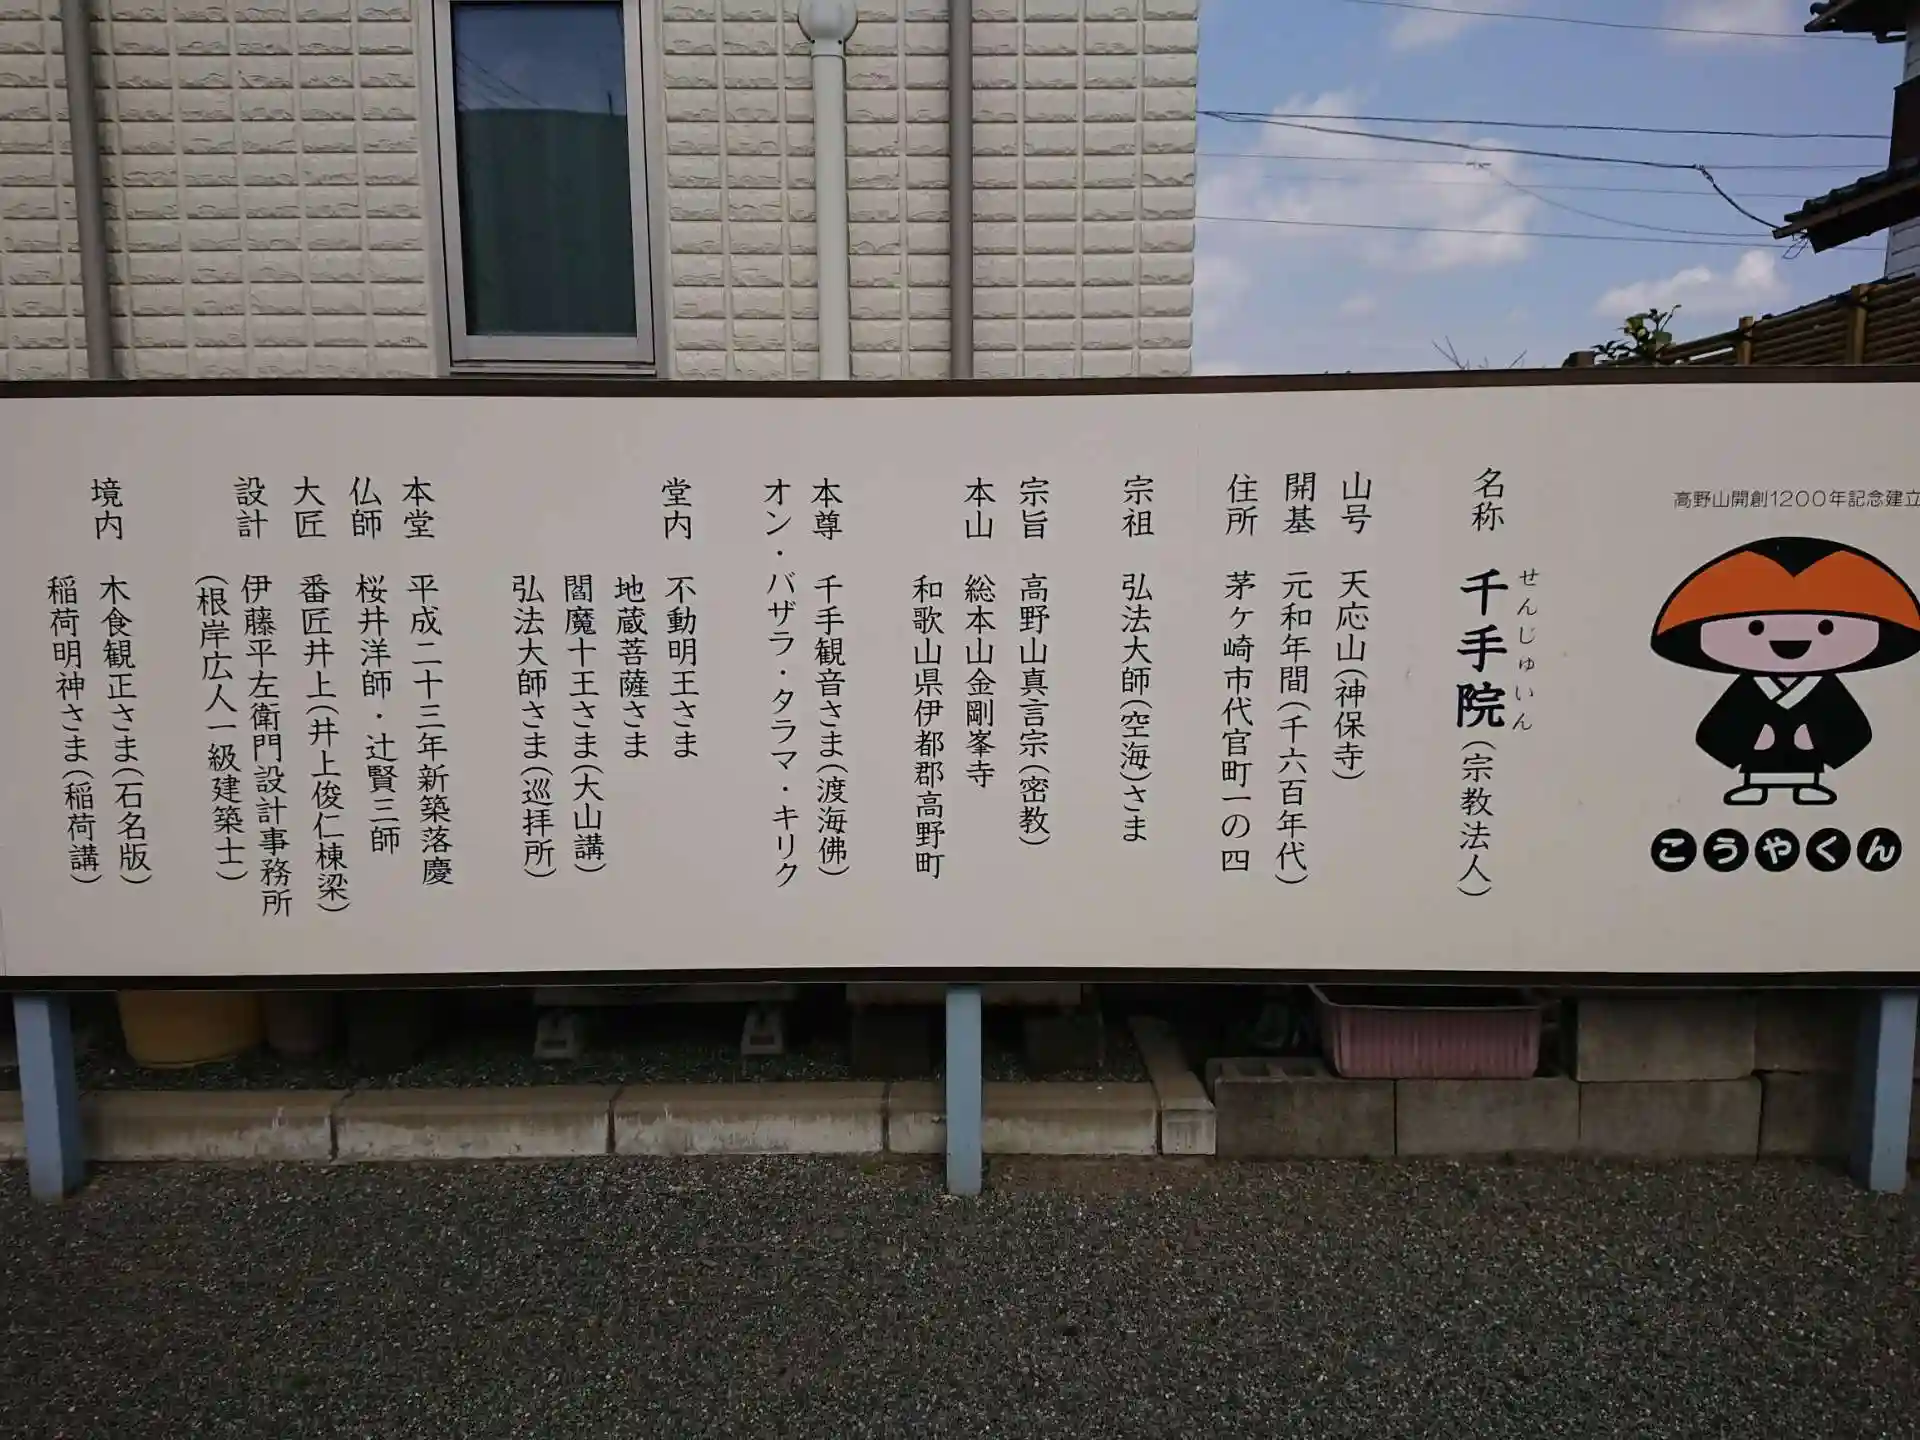 高野山開創1200年記念建立
こうやくん
名称 千手院(宗教法人)
せんじゅいん
山号 天応山(神保寺)
開基 元和年間(千六百年代)
住所 茅ケ崎市代官町一の四
宗祖 弘法大師(空海)さま
宗旨 高野山真言宗(密教)
本山 総本山金剛峯寺
和歌山県伊都郡高野町
本尊 千手観音さま(渡海佛)
オン・バザラ・タラマ・キリク
堂内 不動明王さま
地蔵菩薩さま
閻魔十王さま(大山講)
弘法大師さま(巡拝所)
本堂 平成二十三年新築落慶
仏師 桜井洋師・辻賢三師
大匠 番匠井上(井上俊仁棟梁)
設計 伊藤平左衛門設計事務所
(根岸広人一級建築士)
境内 木食観正さま(石名版)
稲荷明神さま(稲荷講)